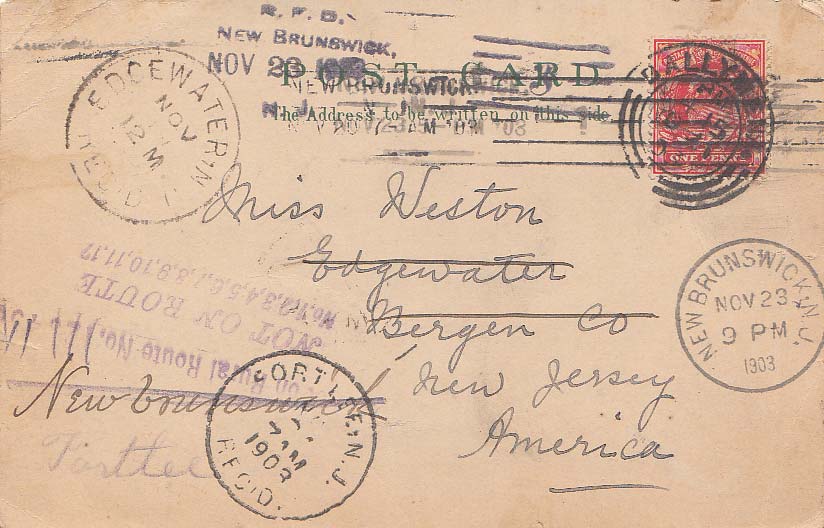 R. F. D.
NEW BRUNSWICK,
NOV 23 1903
POST CARD
NEW BRUNSWICK
N.J.
The Address to be written on this side.
EDGEWATER, N.J.
NOV
12 M
REC'D
BALLYM
ONE PENNY
Miss Weston
Edgewater
Bergen Co
New Jersey
America
NEW BRUNSWICK, N.J.
NOV 23
9 PM
1903
Rural Route No.
NOT ON ROUTE
No. 1,2,3,4,5,6,7,8,9,10,11,12
Newbrunswick
Fortlee
FORT LEE, N.J.
7 AM
1903
REC'D.